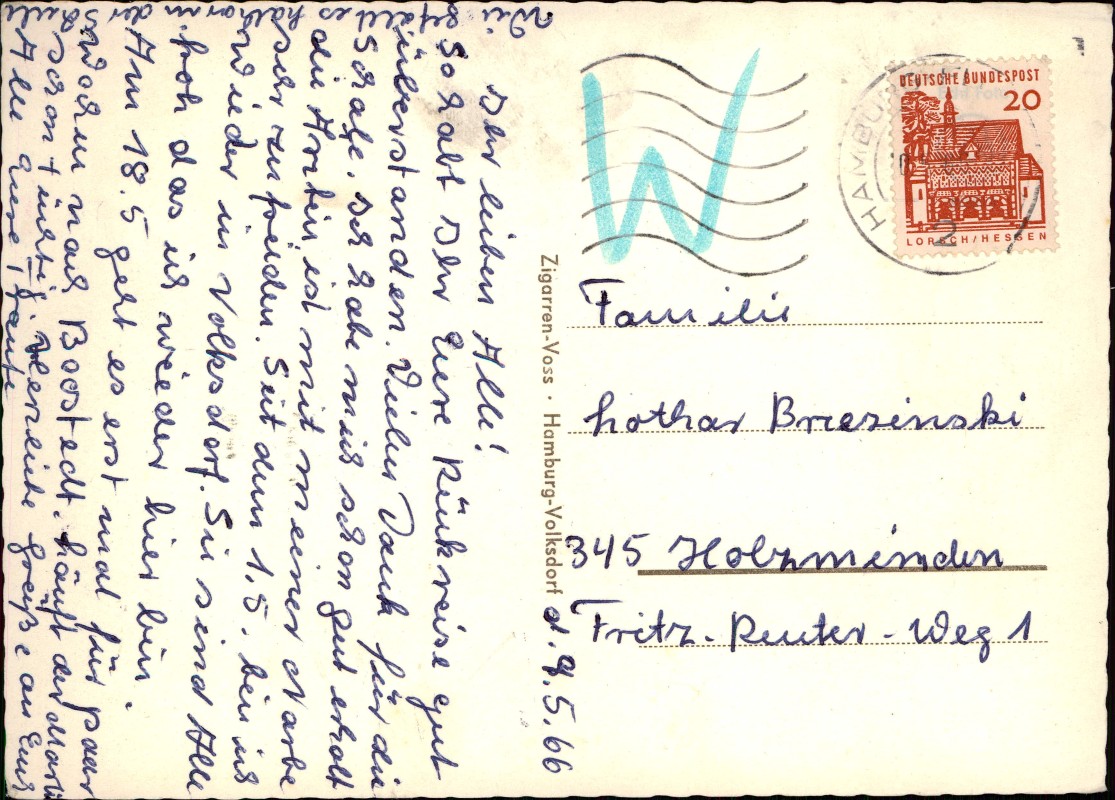 d. 9.5.66
Ihr lieben Alle!
So habt Ihr Eure Rückreise gut
überstanden. Vielen Dank für die
Ich habe mich schon gut erholt
die Ärztin ist mit meiner Narbe
sehr zufrieden. Seit dem 1.5. bin ich
wieder in Volksdorf. Sie sind Alle
froh das ich wieder hier bin.
Am 18.5 geht es erst mal für paar
nach Boostedt. Läuft der Martin
schon tüchtig? Herzliche Grüße an Euch
Alle Eure Traute
Wie
gefällt es
DEUTSCHE BUNDESPOST
20
LORSCH/HESSEN
HAMBURG
2
W
Zigarren-Voss · Hamburg-Volksdorf
Familie
Lothar Brzezinski
345 Holzminden
Fritz-Reuter-Weg 1